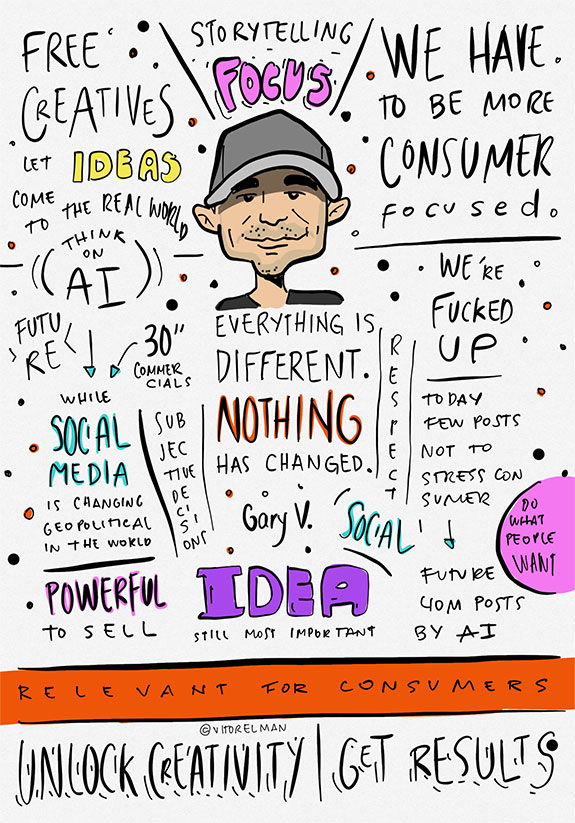 FREE
CREATIVES
LET IDEAS
COME
TO THE REAL WORLD
THINK
ON
AI
STORYTELLING
FOCUS
WE HAVE.
TO BE MORE
CONSUMER
Focused.
FUTU
RE
30"
COMMER
CIALS
WHILE
SOCIAL
MEDIA
IS CHANGING
GEOPOLITICAL
IN THE WORLD
SUB
JEC
TIVE
DE
CI
SI
ONS
POWERFUL
TO SELL
EVERYTHING IS
DIFFERENT.
NOTHING
HAS CHANGED.
Gary V.
RESPECT
SOCIAL
IDEA
STILL MOST IMPORTANT
WE'RE
FUCKED
UP
TODAY
FEW POSTS
NOT TO
STRESS CON
SUMER
DO
WHAT
PEOPLE
WANT
FUTURE
40M POSTS
BY AI
RELEVANT FOR CONSUMERS
©VITORELMAN
UNLOCK CREATIVITY | GET RESULTS